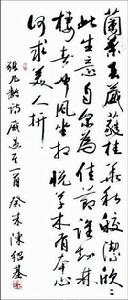 蘭葉春葳蕤桂華秋皎潔欣欣
此生意自爾為佳節誰知林
棲者聞風坐相悦草木有本心
何求美人折
張九齡詩感遇其一首 癸未 陳紹基